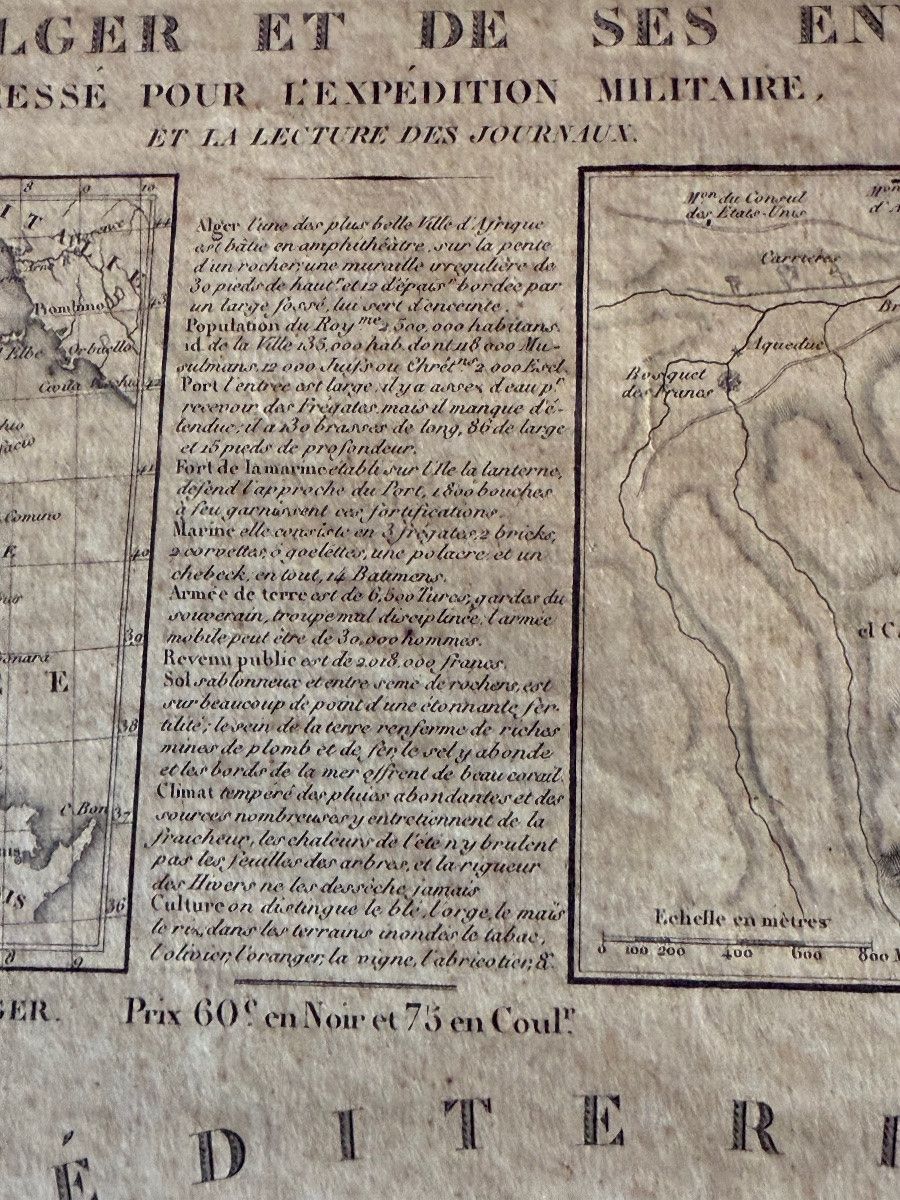 LGER ET DE SES EN
RESSÉ POUR L'EXPÉDITION MILITAIRE,
ET LA LECTURE DES JOURNAUX.
8 9 10
Piombino
Orbitello
Civita Vechia
I. Elbe
44
43
42
41
40
39
38
37
36
Comino
C. Bon
Alger l'une des plus belle Ville d'Afrique
est bâtie en amphithéâtre, sur la pente
d'un rocher; une muraille irregulière de
30 pieds de haut.r et 12 d'épais.r bordée par
un large fossé, lui sert d'enceinte.
Population du Roy.me 2,500,000 habitans.
id de la Ville 135,000 hab. dont 118 000 Mu-
sulmans, 12 000 Juifs ou Chrét.ns 2 000 Escl.
Port l'entrée est large, il y a assez d'eau p.r
recevoir des Frégates, mais il manque d'é-
tendue; il a 130 brasses de long, 86 de large
et 15 pieds de profondeur.
Fort de la marine établi sur l'Ile la lanterne,
défend l'approche du Port, 1800 bouches
à feu garnissent ces fortifications.
Marine elle consiste en 3 frégates, 2 bricks,
2 corvettes, 6 goelettes, une polacre et un
chebeck, en tout, 14 Batimens.
Armée de terre est de 6,500 Turcs, gardes du
souverain, troupe mal disciplinée, l'armée
mobile peut être de 30,000 hommes.
Revenu public est de 2,018,000 francs.
Sol sablonneux et entre semé de rochers, est
sur beaucoup de point d'une étonnante fer-
tilité; le sein de la terre renferme de riches
mines de plomb et de fer, le sel y abonde
et les bords de la mer offrent de beau corail.
Climat temperé des pluies abondantes et des
sources nombreuses y entretiennent de la
fraicheur, les chaleurs de l'été n'y brulent
pas les feuilles des arbres, et la rigueur
des Hivers ne les dessèche jamais
Culture on distingue le blé, l'orge, le maïs
le riz, dans les terrains inondés le tabac,
l'olivier, l'oranger, la vigne, l'abricotier, &.
M.on du Consul
des Etats-Unis
Carrières
Aqueduc
Bosquet
des Francs
el C
Echelle en mètres
0 100 200 400 600 800 M
GER. Prix 60.c en Noir et 75 en Coul.r
É D I T E R